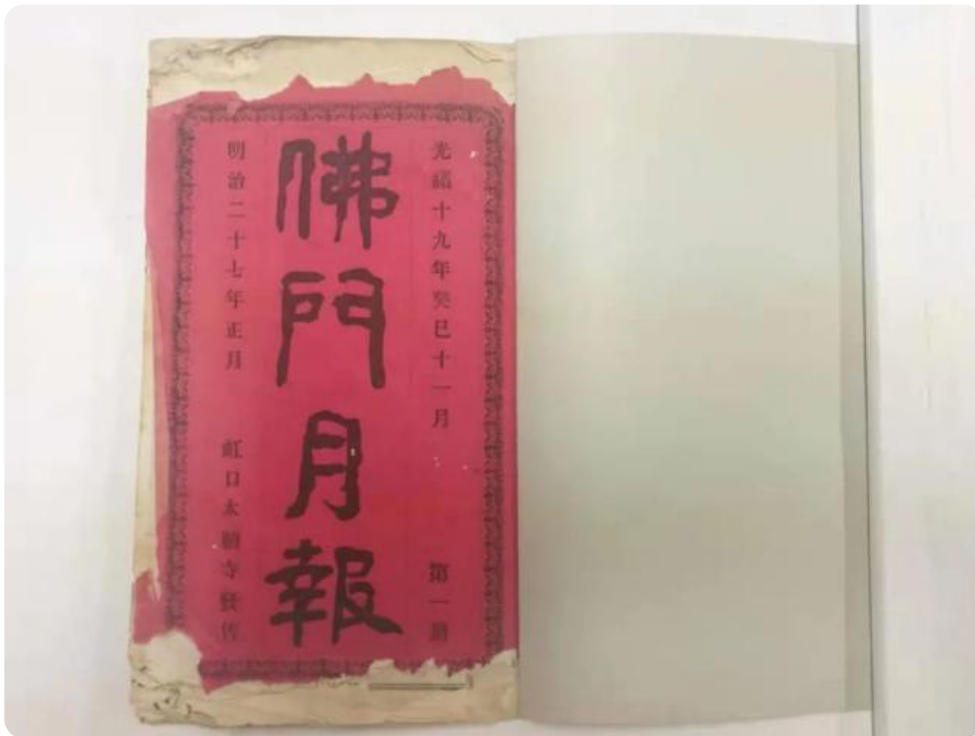 光緒十九年癸巳十一月 第一冊
佛門月報
明治二十七年正月 虹口本願寺發